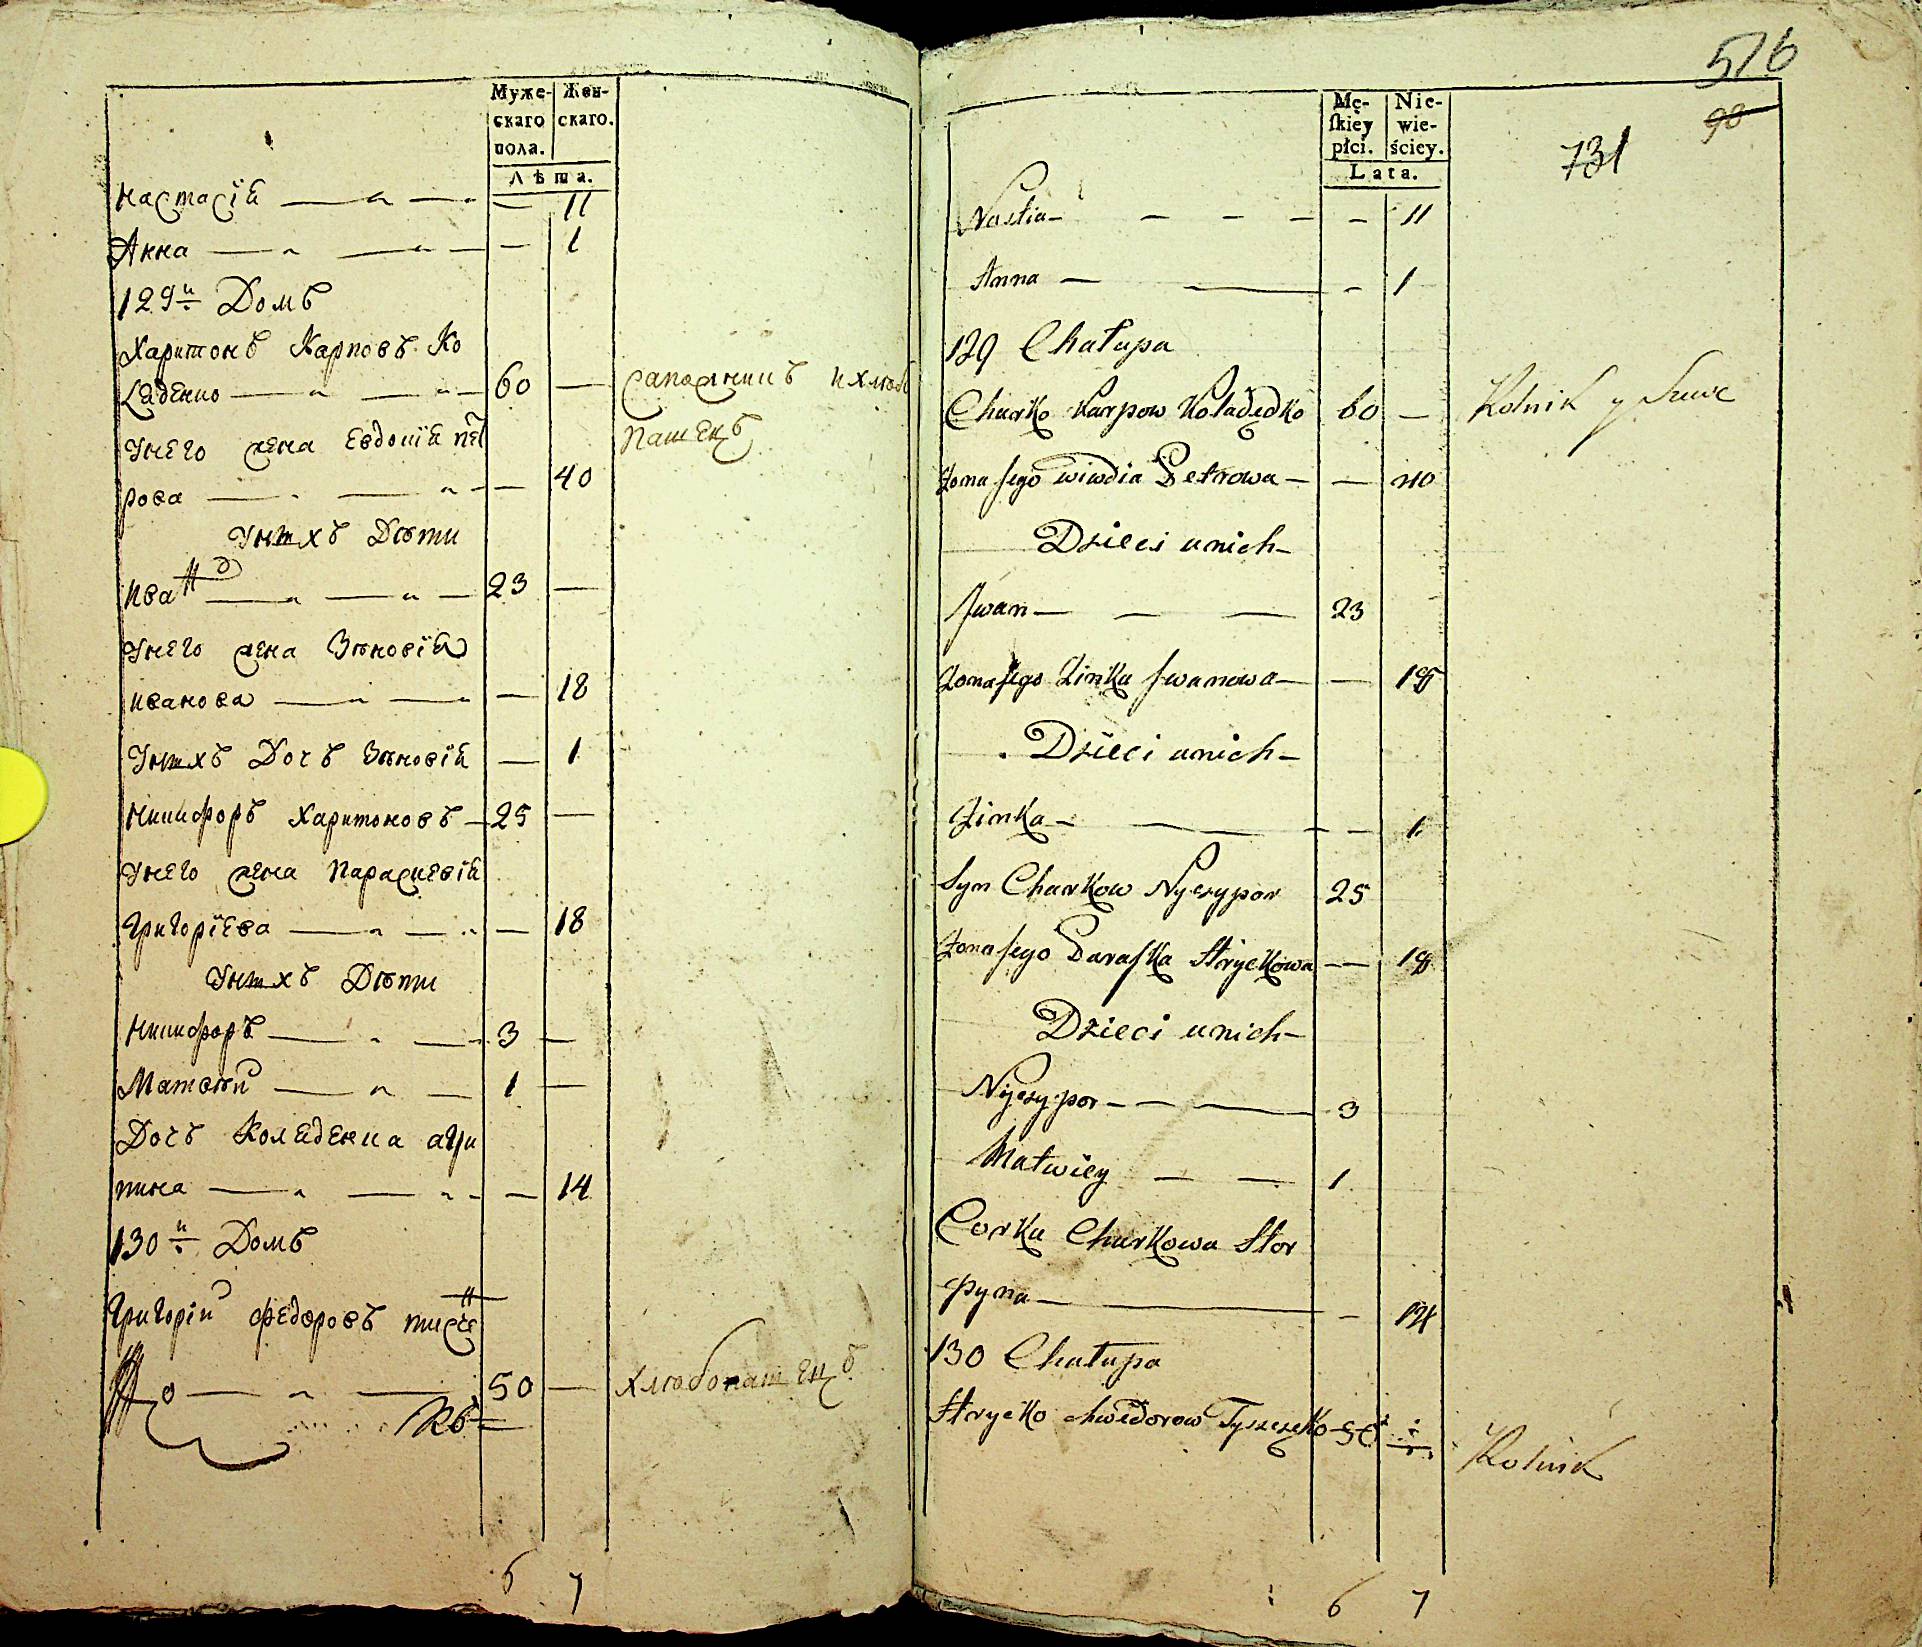 Муже-
скаго
пола.
Жен-
скаго.
Лѣта.
Настасїя — — — 11
Анна — — — 1
129й Домъ
Харитонъ Карповъ Ко
ляденко — — 60 — сапожникъ и хлѣбо
пашецъ
Унего жена Евдокїя Пет
рова — — — 40
Унихъ Дѣти
Иванъ — — 23 —
Унего жена Зѣновїя
Иванова — — — 18
Унихъ Дочъ Зѣновїя — 1
Никифоръ Харитоновъ — 25 —
Унего жена Параскевїя
Григорїева — — — 18
Унихъ Дѣти
Никифоръ — — 3 —
Матвѣй — — 1 —
Дочъ Коляденка Агри
пина — — — 14
130й Домъ
Григорїй Федоровъ Тищен
ко — — 50 — хлѣбопашецъ
6 7
576
98
731
Mę-
skiey
płci.
Nie-
wie-
ściey.
Lata.
Nastia — — — — 11
Anna — — — 1
129 Chałupa
Charko Karpow Koladędko 60 — Rolnik y Szwc
Zona jego Wiwdia Petrowa — — 40
Dzieci unich —
Jwan — — — 23
Zona jego Zinka Jwanowa — — 18
Dzieci unich —
Zinka — — — — 1
Syn Charkow Nyczypor 25
Zona jego Paraska Hryckowa — 18
Dzieci unich —
Nyczypor — — — 3
Matwiey — — 1
Corka Charkowa Hor
pyna — — — 14
130 Chałupa
Hrycko Chwedorow Tyszczeko — 50 Rolnik
6 7